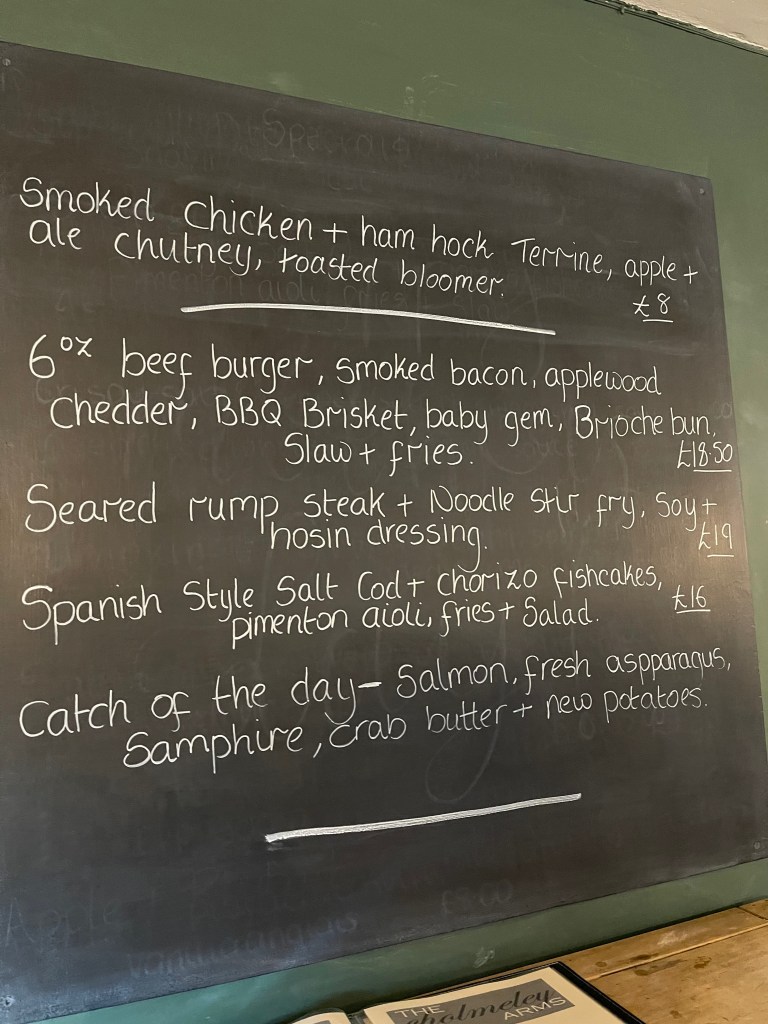 Specials
Smoked Chicken + ham hock Terrine, apple +
ale chutney, toasted bloomer.
£8
6oz beef burger, smoked bacon, applewood
Chedder, BBQ Brisket, baby gem, Brioche bun,
Slaw + fries.
£18.50
Seared rump steak + Noodle stir fry, Soy +
hosin dressing.
£19
Spanish Style Salt Cod + chorizo fishcakes,
£16
pimenton aioli, fries + Salad.
Catch of the day - Salmon, fresh aspparagus,
Samphire, crab butter + new potatoes.
THE
Cholmeley
ARMS